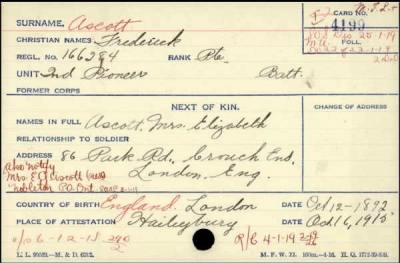 SURNAME, Ascott
CARD NO.
4199
CHRISTIAN NAMES Frederick
FOLL.
REGL. NO. 166284 RANK Pte.
UNIT 2nd Pioneer Batt.
FORMER CORPS
NEXT OF KIN.
CHANGE OF ADDRESS
NAMES IN FULL Ascott, Mrs. Elizabeth
RELATIONSHIP TO SOLDIER
ADDRESS 86 Park Rd., Crouch End,
London, Eng.
also notify
Mrs E Ascott
Nobleton P.O. Ont.
COUNTRY OF BIRTH England. London DATE Oct. 12-1892
PLACE OF ATTESTATION Haileybury DATE Oct. 16, 1915
R/C 4-1-19